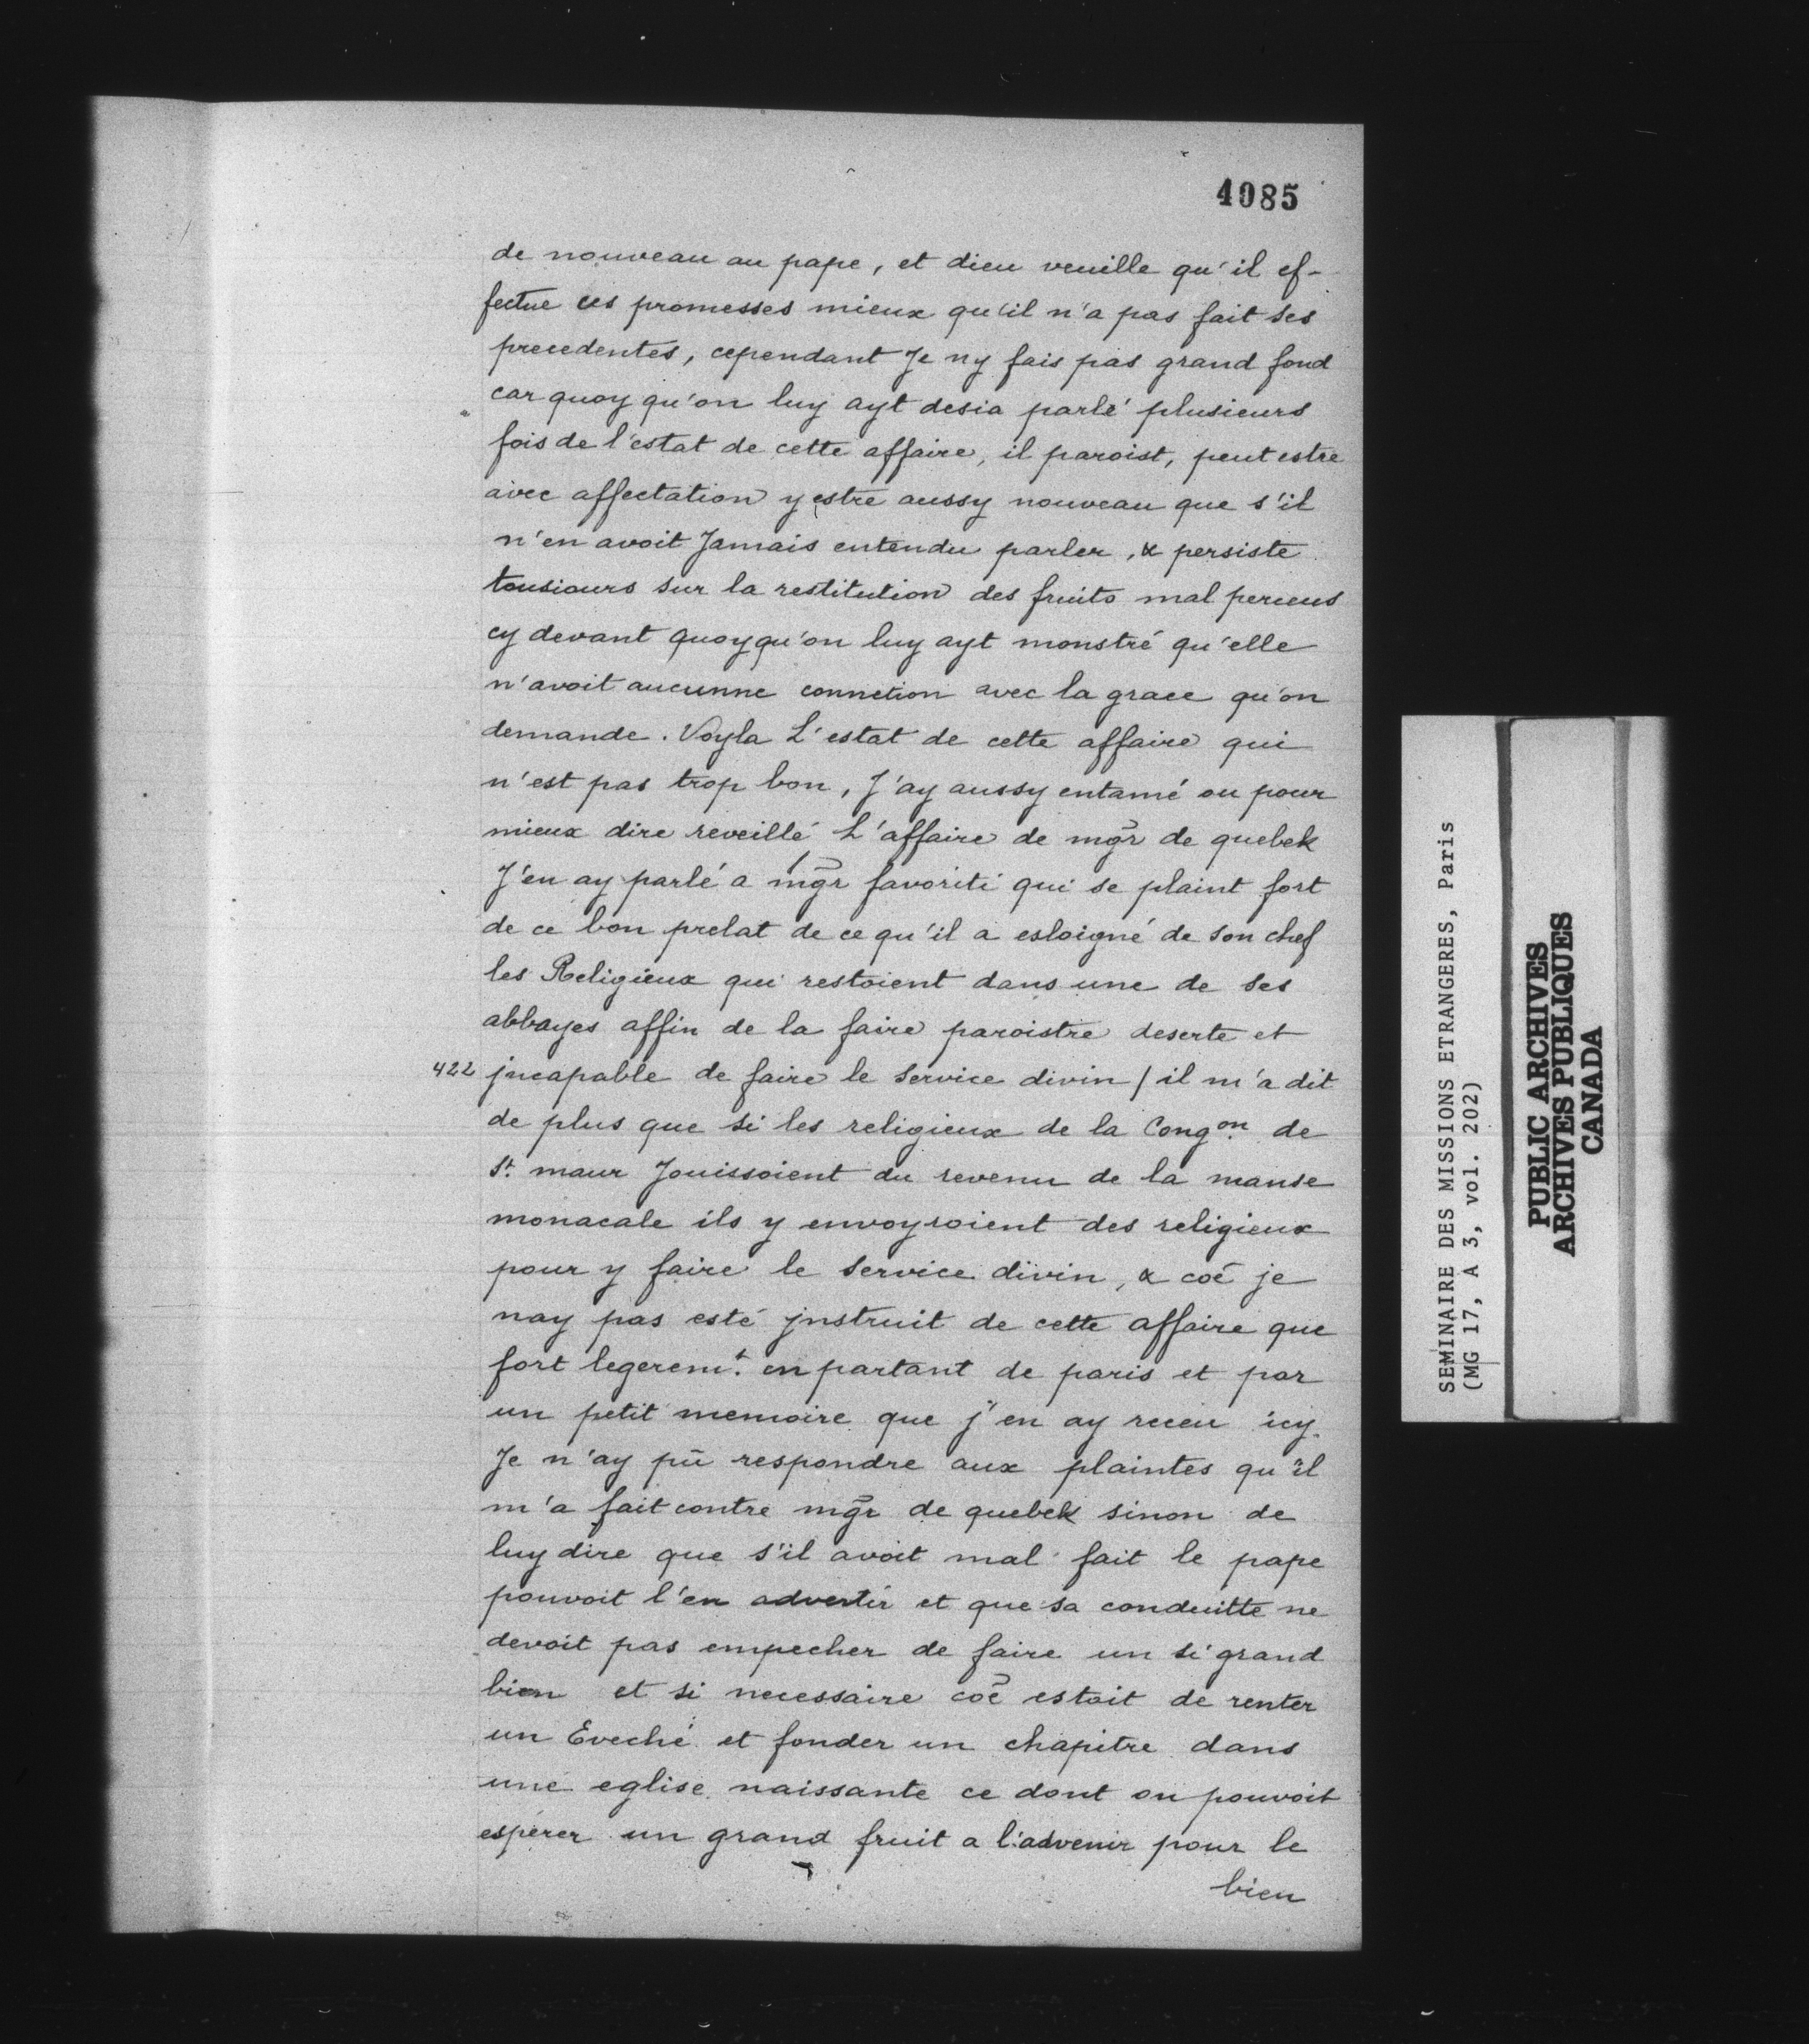 4085
de nouveau au pape, et dieu veuille qu'il ef-
fectue ces promesses mieux qu'il n'a pas fait ses
precedentes, cependant Je ny fais pas grand fond
car quoy qu'on luy ayt desia parlé plusieurs
fois de l'estat de cette affaire, il paroist, peut estre
avec affectation y estre aussy nouveau que s'il
n'en avoit Jamais entendu parler, & persiste
tousiours sur la restitution des fruits mal perceus
cy devant quoyqu'on luy ayt monstré qu'elle
n'avoit aucunne connetion avec la grace qu'on
demande. Voyla L'estat de cette affaire qui
n'est pas trop bon, J'ay aussy entamé ou pour
mieux dire reveillé L'affaire de mg̃r de quebek
J'en ay parlé a mg̃r favoriti qui se plaint fort
de ce bon prelat de ce qu'il a esloigné de son chef
les Religieux qui restoient dans une de ses
abbayes affin de la faire paroistre deserte et
422 jncapable de faire le service divin / il m'a dit
de plus que si les religieux de la Congon. de
St. maur Jouissoient du revenu de la manse
monacale ils y envoyroient des religieux
pour y faire le service divin, & coẽ je
nay pas esté jnstruit de cette affaire que
fort legeremt. en partant de paris et par
un petit memoire que j'en ay receu icy.
Je n'ay pū respondre aux plaintes qu'il
m'a fait contre mg̃r de quebek sinon de
luy dire que s'il avoit mal fait le pape
pouvoit l'en advertir et que sa conduitte ne
devoit pas empecher de faire un si grand
bien et si necessaire coẽ estoit de renter
un Eveché et fonder un chapitre dans
une eglise naissante ce dont on pouvoit
esperer un grand fruit a l'advenir pour le
bien
SEMINAIRE DES MISSIONS ETRANGERES, Paris
(MG 17, A 3, vol. 202)
PUBLIC ARCHIVES
ARCHIVES PUBLIQUES
CANADA